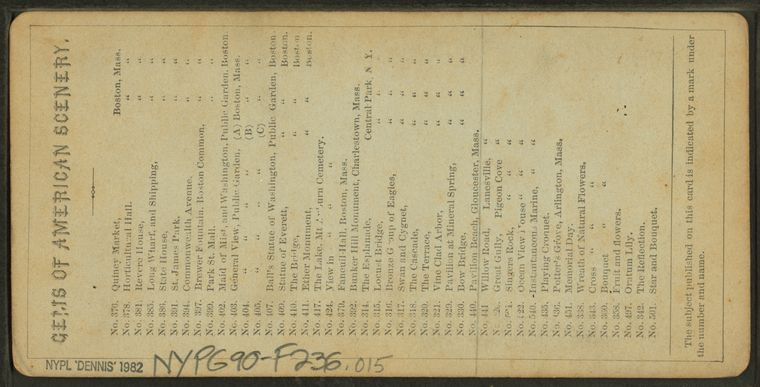 GEMS OF AMERICAN SCENERY.
No. 376. Quincy Market, Boston, Mass.
No. 378. Horticultural Hall. " "
No. 381. Revere House, " "
No. 385. Long Wharf, and Shipping, " "
No. 386. State House, " "
No. 391. St. James Park. " "
No. 394. Commonwealth Avenue. " "
No. 397. Brewer Fountain. Boston Common,
No. 399. Park St. Mall, " "
No. 402. Maid of Mist, and Washington, Public Garden, Boston
No. 403. General View, Public Garden, (A) Boston, Mass.
No. 404. " " " (B) " "
No. 405. " " " (C) " "
No. 407. Ball's Statue of Washington, Public Garden, Boston
No. 409. Statue of Everett, " " Boston.
No. 410. The Bridge, " " Boston
No. 411. Ether Monument, " " Boston.
No. 417. The Lake, Mt Auburn Cemetery.
No. 424. View in " " "
No. 370. Faneuil Hall, Boston, Mass.
No. 392. Bunker Hill Monument, Charlestown, Mass.
No. 314. The Esplanade, Central Park, N Y.
No. 315. Terrace Bridge, " "
No. 316. Bronze Group of Eagles, " "
No. 317. Swan and Cygnet, " "
No. 318. The Cascade, " "
No. 320. The Terrace, " "
No. 321. Vine Clad Arbor, " "
No. 329. Pavilion at Mineral Spring, " "
No. 330. Bow Bridge, " "
No. 440. Pavilion Beach, Gloucester, Mass.
No. 441 Willow Road, Lanesville, "
Great Gully, Pigeon Cove "
Singers Rock, " "
Ocean View House " "
Instantaneous Marine, " "
No. 435. Playing Croquet.
No. 436. Potter's Grove, Arlington, Mass.
No. 431. Memorial Day.
No. 328. Wreath of Natural Flowers,
No. 343. Cross " "
No. 350. Bouquet " "
No. 358. Fruit and flowers.
No. 497. Oratum Lily.
No. 342. The Reflection.
No. 501. Star and Bouquet.
The subject published on this card is indicated by a mark under
the number and name.
NYPL 'DENNIS' 1982 NYPG90-F236.015